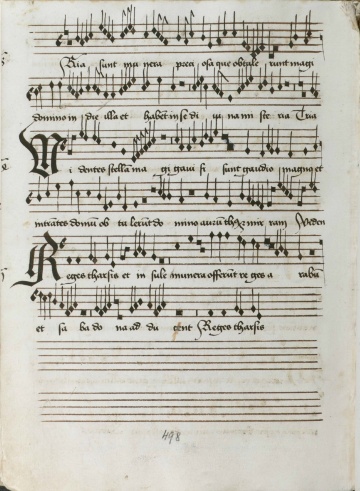 Ria sunt mu nera preci osa que obtule runt magi
domino in die illa et habent in se di ui na mi ste ria Tria
Videntes stella ma gi gaui si sunt gaudio magno et
intrātes domū ob tu lerūt do mino aurū thꝰ mir ram Viden
Reges tharsis et in sule munera offerūt re ges a rabū
et sa ba do na ad du cent Reges tharsis
498